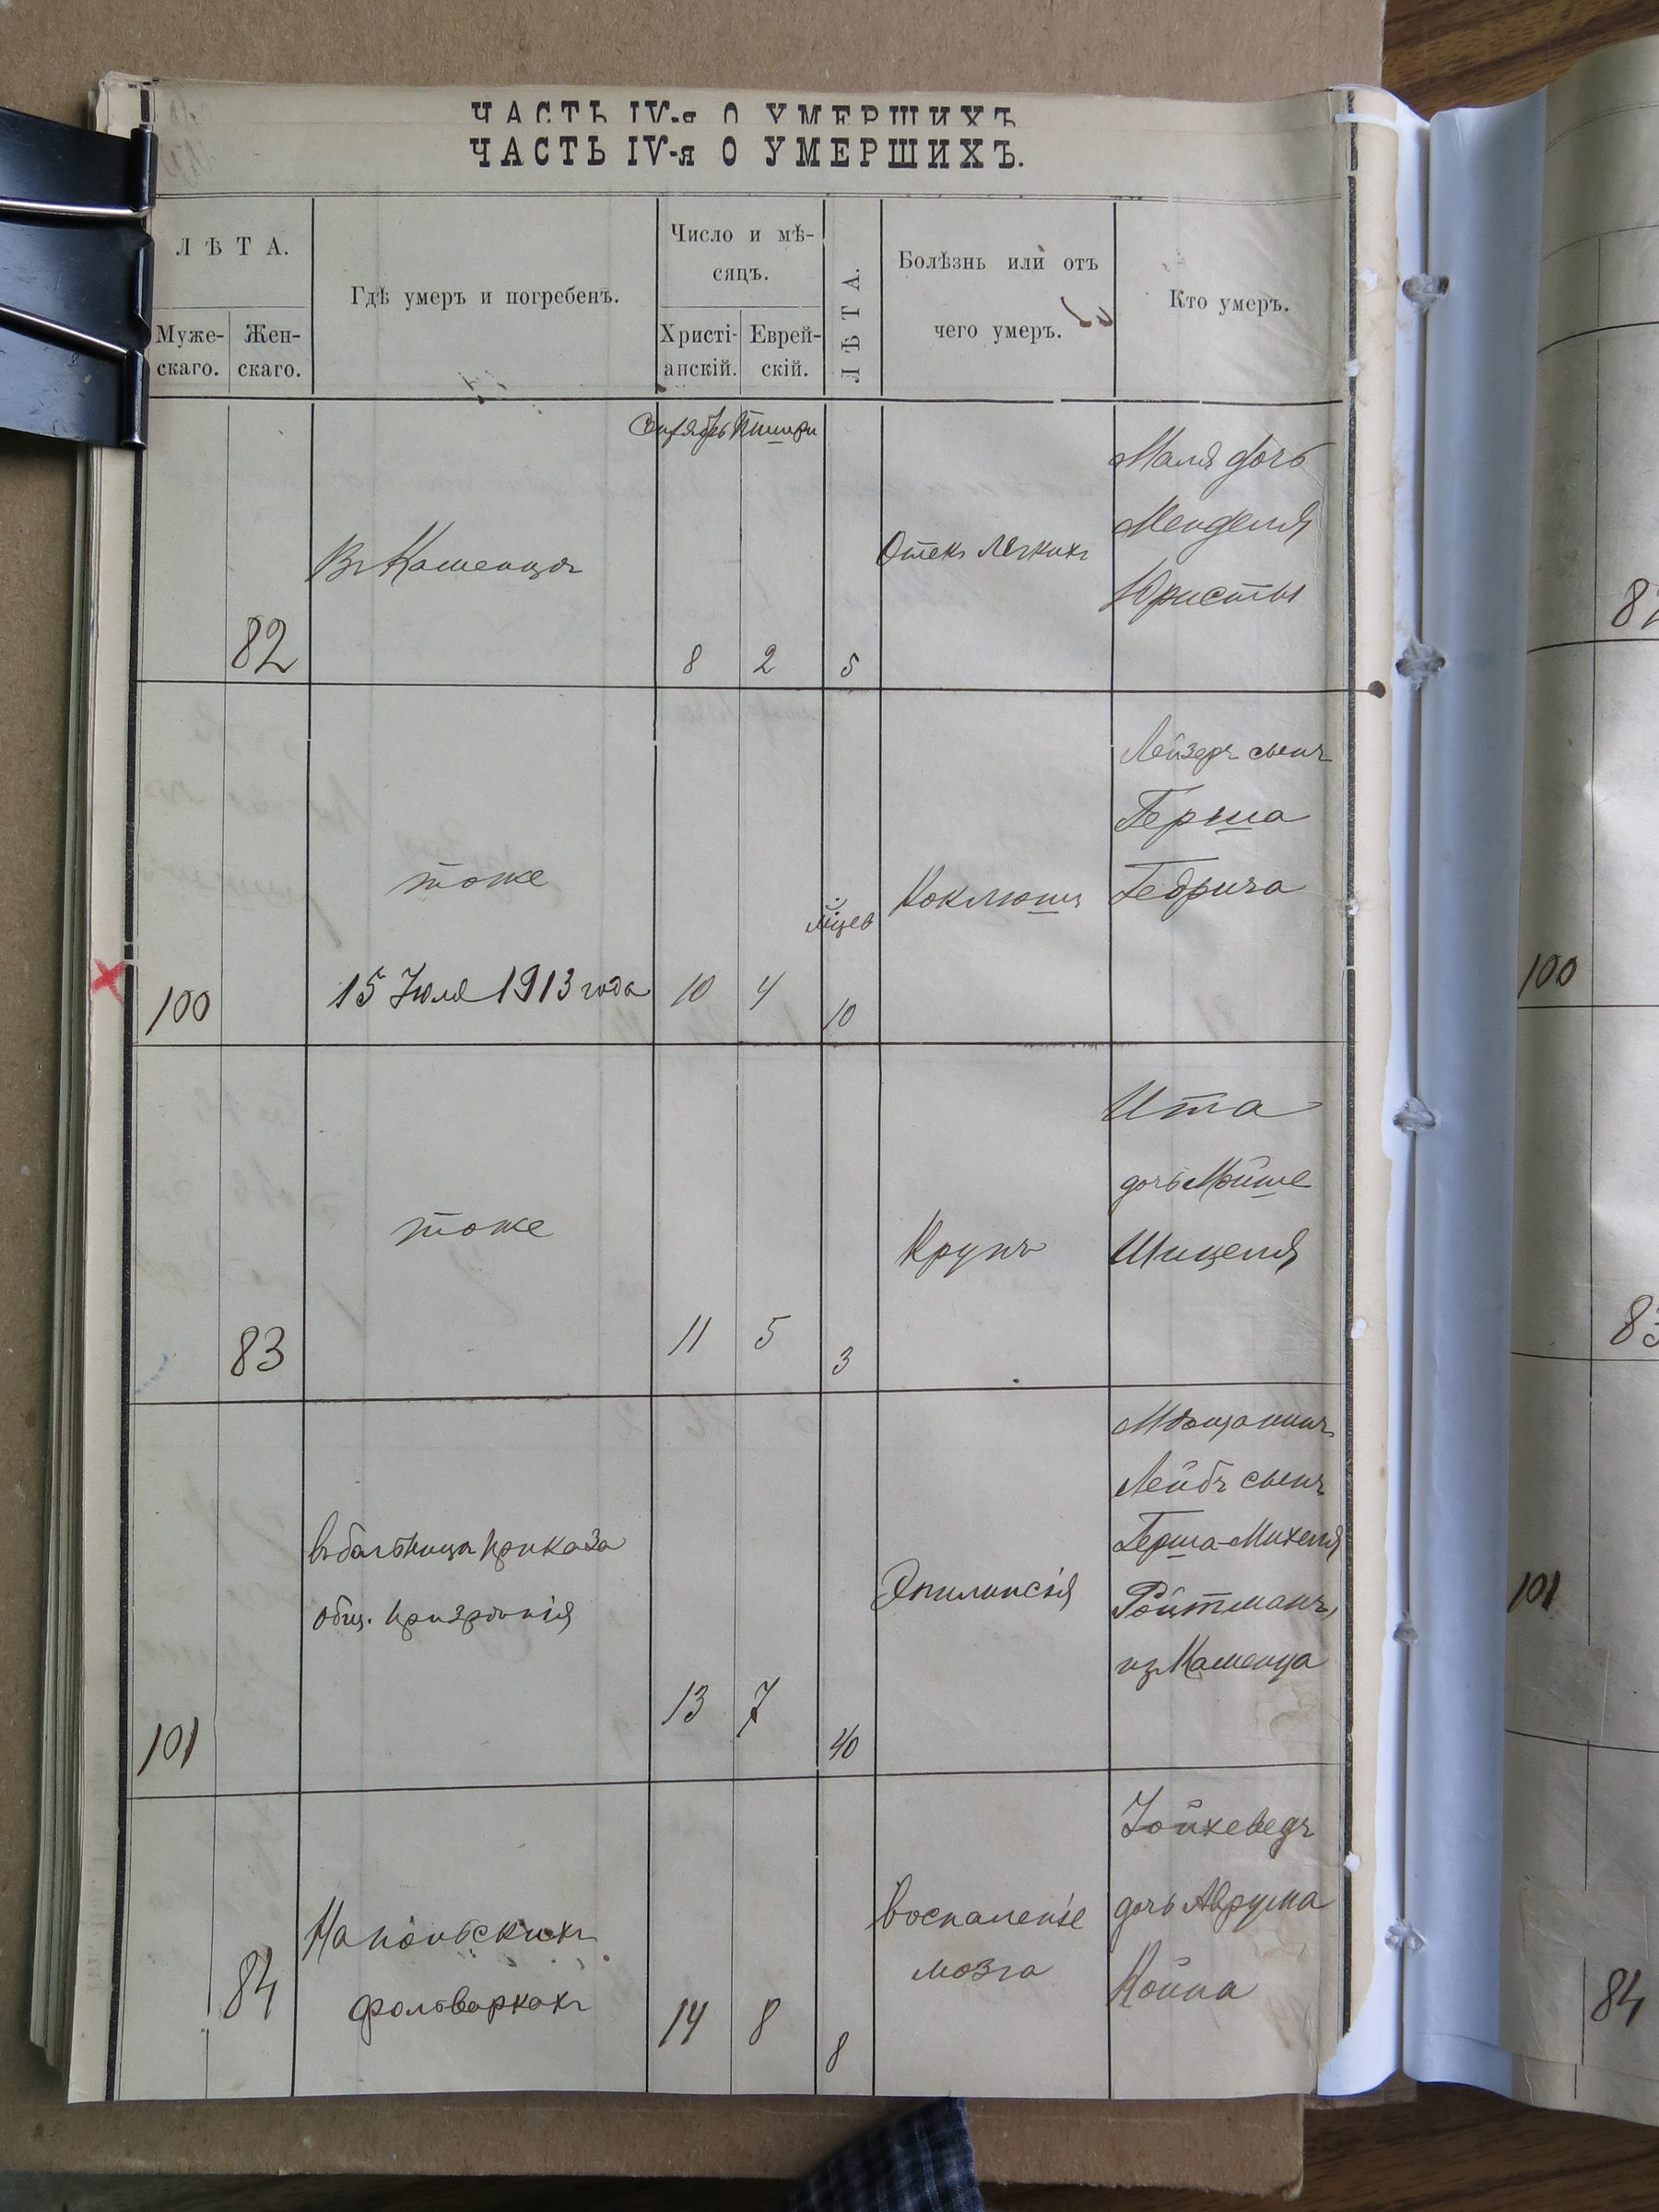 ЧАСТЬ IV-я О УМЕРШИХЪ
ЧАСТЬ IV-я О УМЕРШИХЪ.
ЛѢТА.
Муже-
скаго.
Жен-
скаго.
Гдѣ умеръ и погребенъ.
Число и мѣ-
сяцъ.
Христі-
анскій.
Еврей-
скій.
ЛѢТА.
Болѣзнь или отъ
чего умеръ.
Кто умеръ.
Октябрь Тишри
82
Въ Каменцѣ
8
2
5
Отекъ легкихъ
Маля дочь
Менделя
Юристы
100
тоже
15 Іюля 1913 года
10
4
мѣцев
10
Коклюшъ
Лейзеръ сынъ
Герша
Гедрича
83
тоже
11
5
3
Крупъ
Ита
дочь Мойше
Шицеля
101
въ больницѣ приказа
общ. призрѣнія
13
7
40
Эпилипсія
Мѣщанинъ
Лейбъ сынъ
Герша-Михеля
Ройтманъ,
изъ Каменца
84
На польскихъ
фольваркахъ
14
8
8
воспаленіе
мозга
Іойхеведъ
дочь Аврума
Койна
82
100
83
101
84